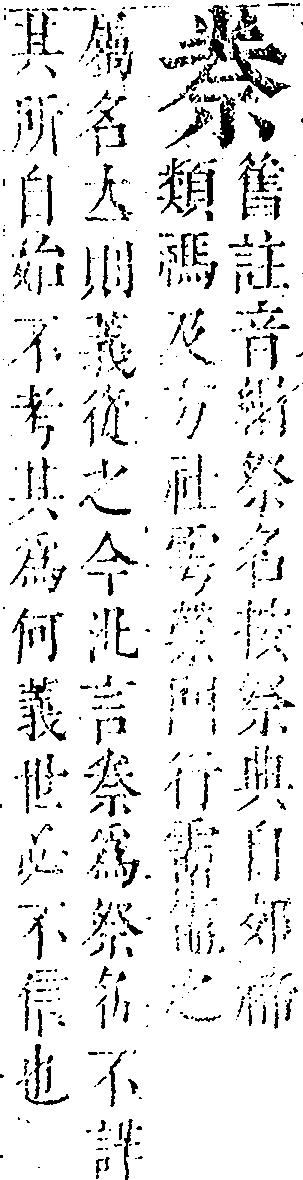 舊註音祭名按祭典自郊禘
類禡及方社雩禜門行霤儺之
名立則義從之今言爲祭名不詳
其所自始不考其爲何義世必不信也